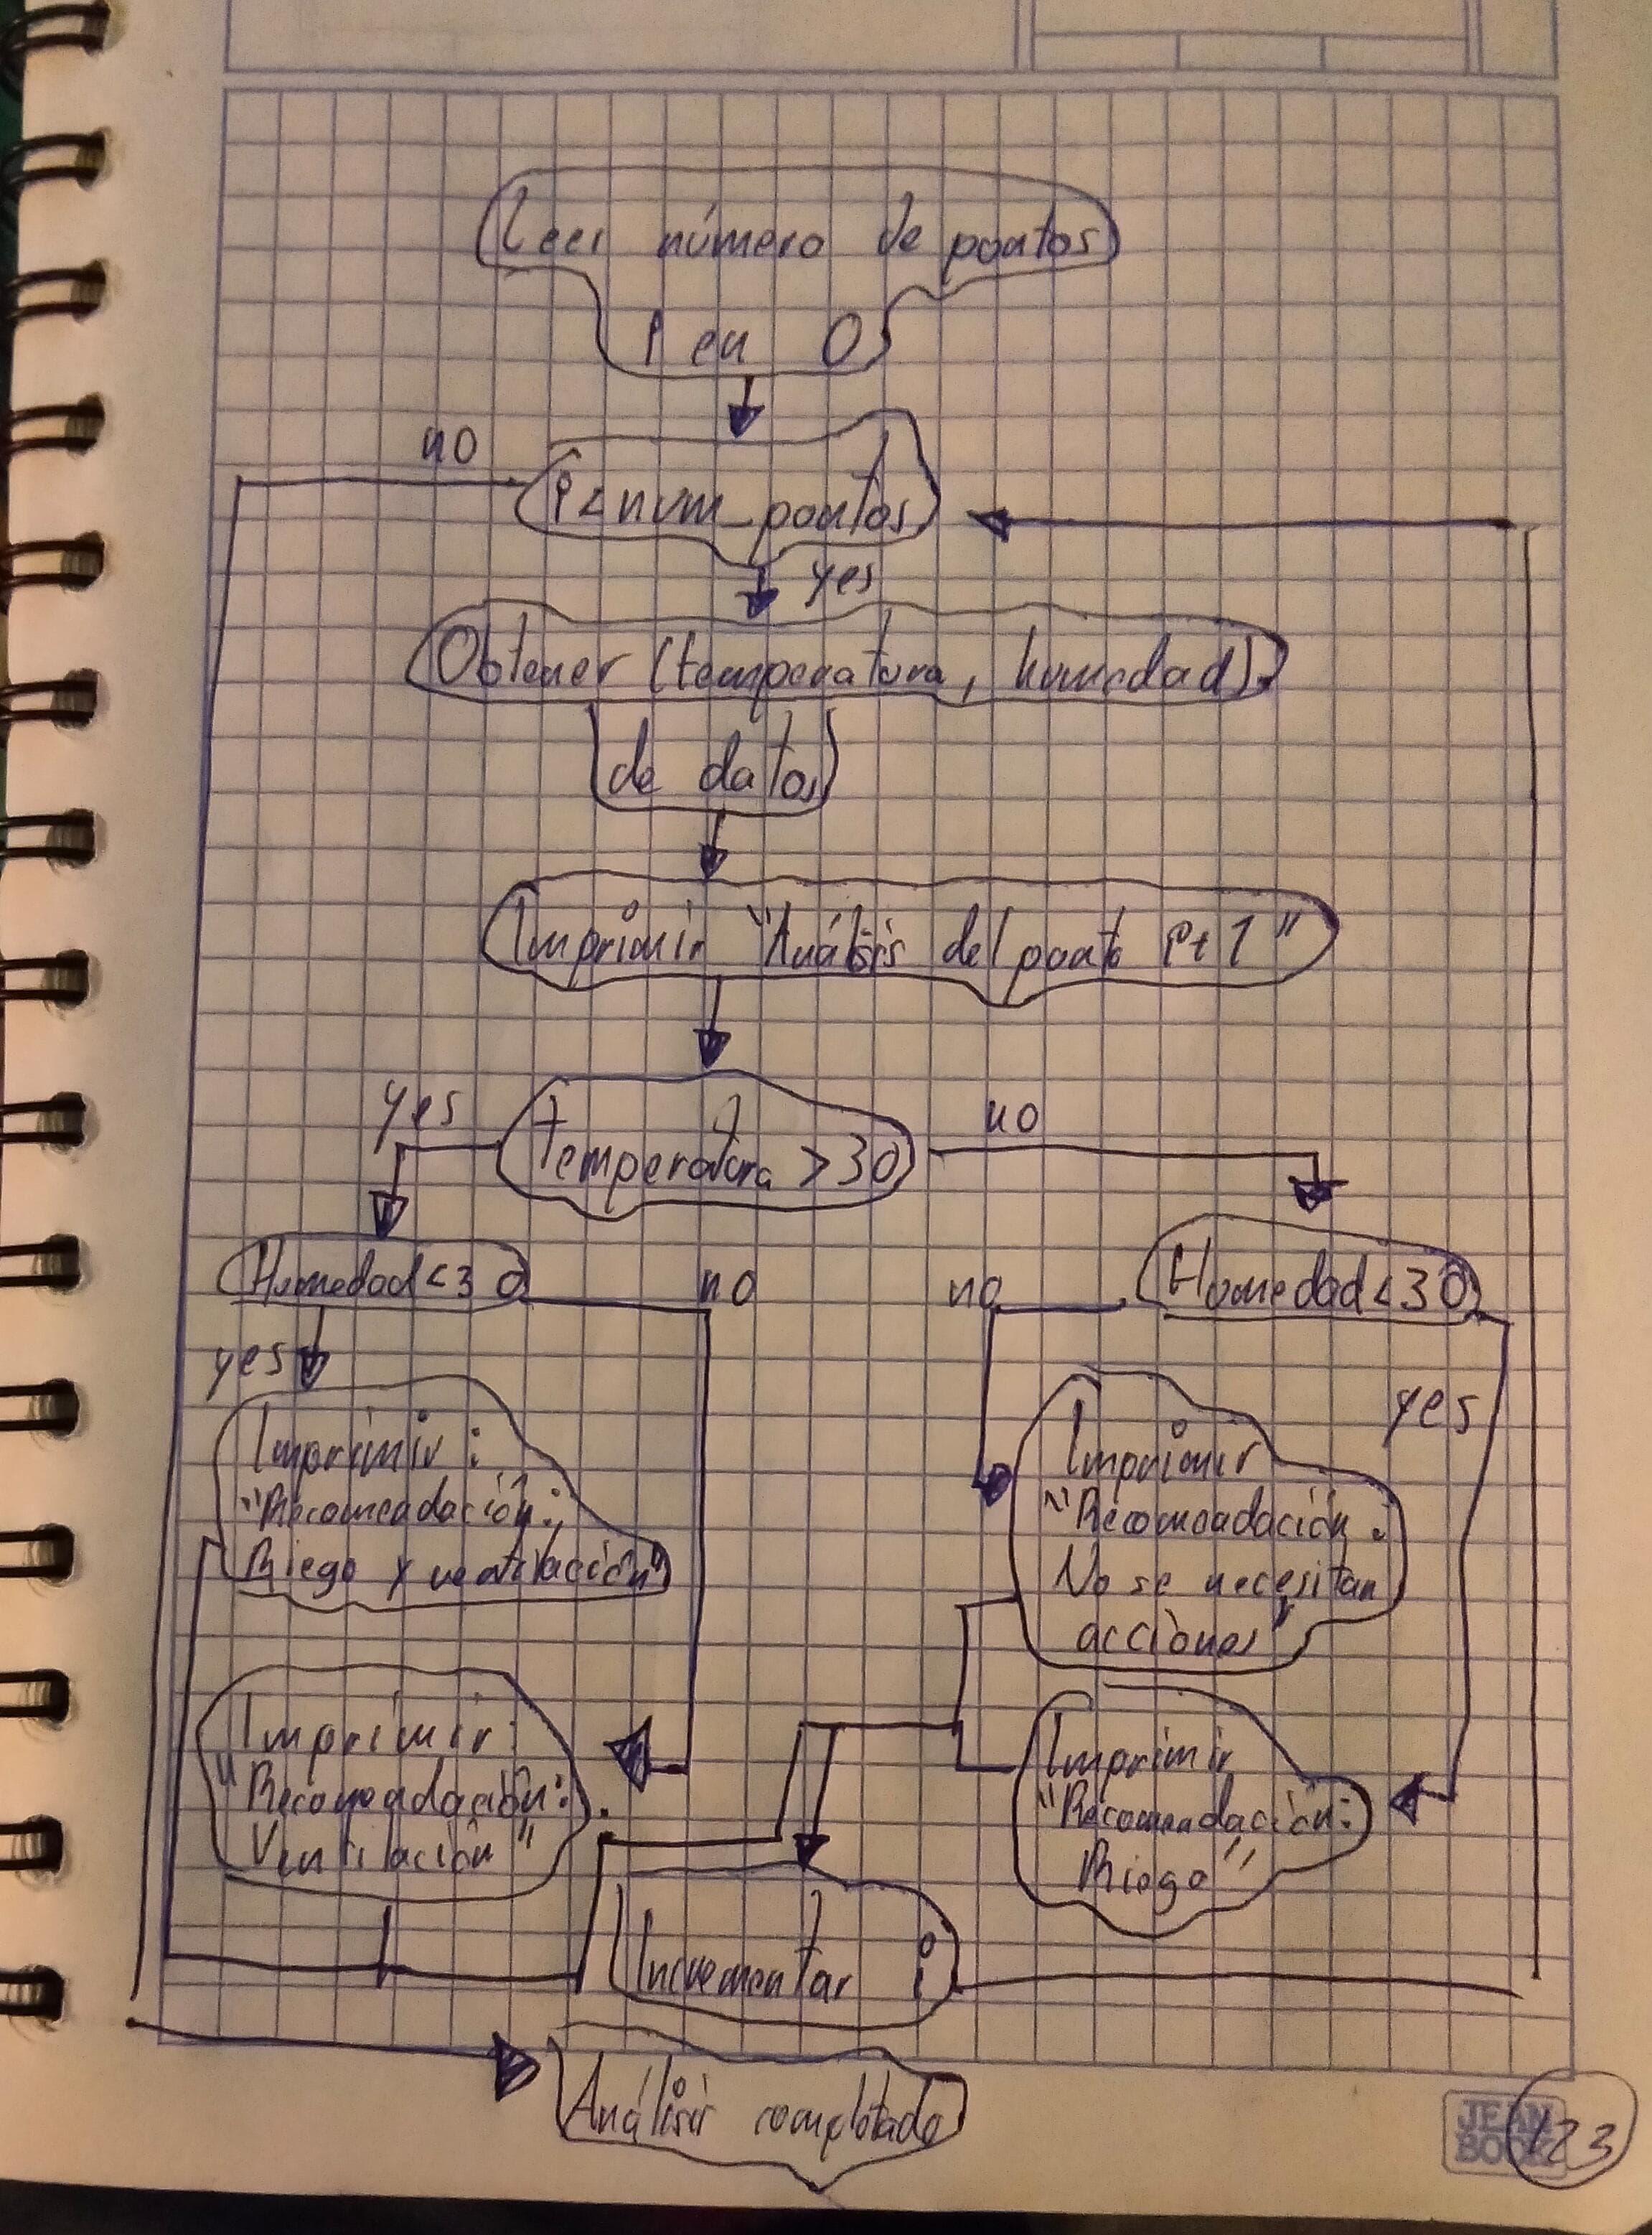 Leer número de puntos
i en 0
no
i<num_puntos
yes
Obtener (temperatura, humedad)
de datos
Imprimir "Análisis del punto i+1"
yes
no
Temperatura >30
Humedad<30
no
no
Humedad<30
yes
yes
Imprimir:
"Recomendación:
Riego y ventilación"
Imprimir
"Recomendación:
No se necesitan
acciones"
Imprimir:
"Recomendación:
Ventilación"
Imprimir
"Recomendación:
Riego"
Incrementar i
Análisis completado
JEAN
BOOK
123